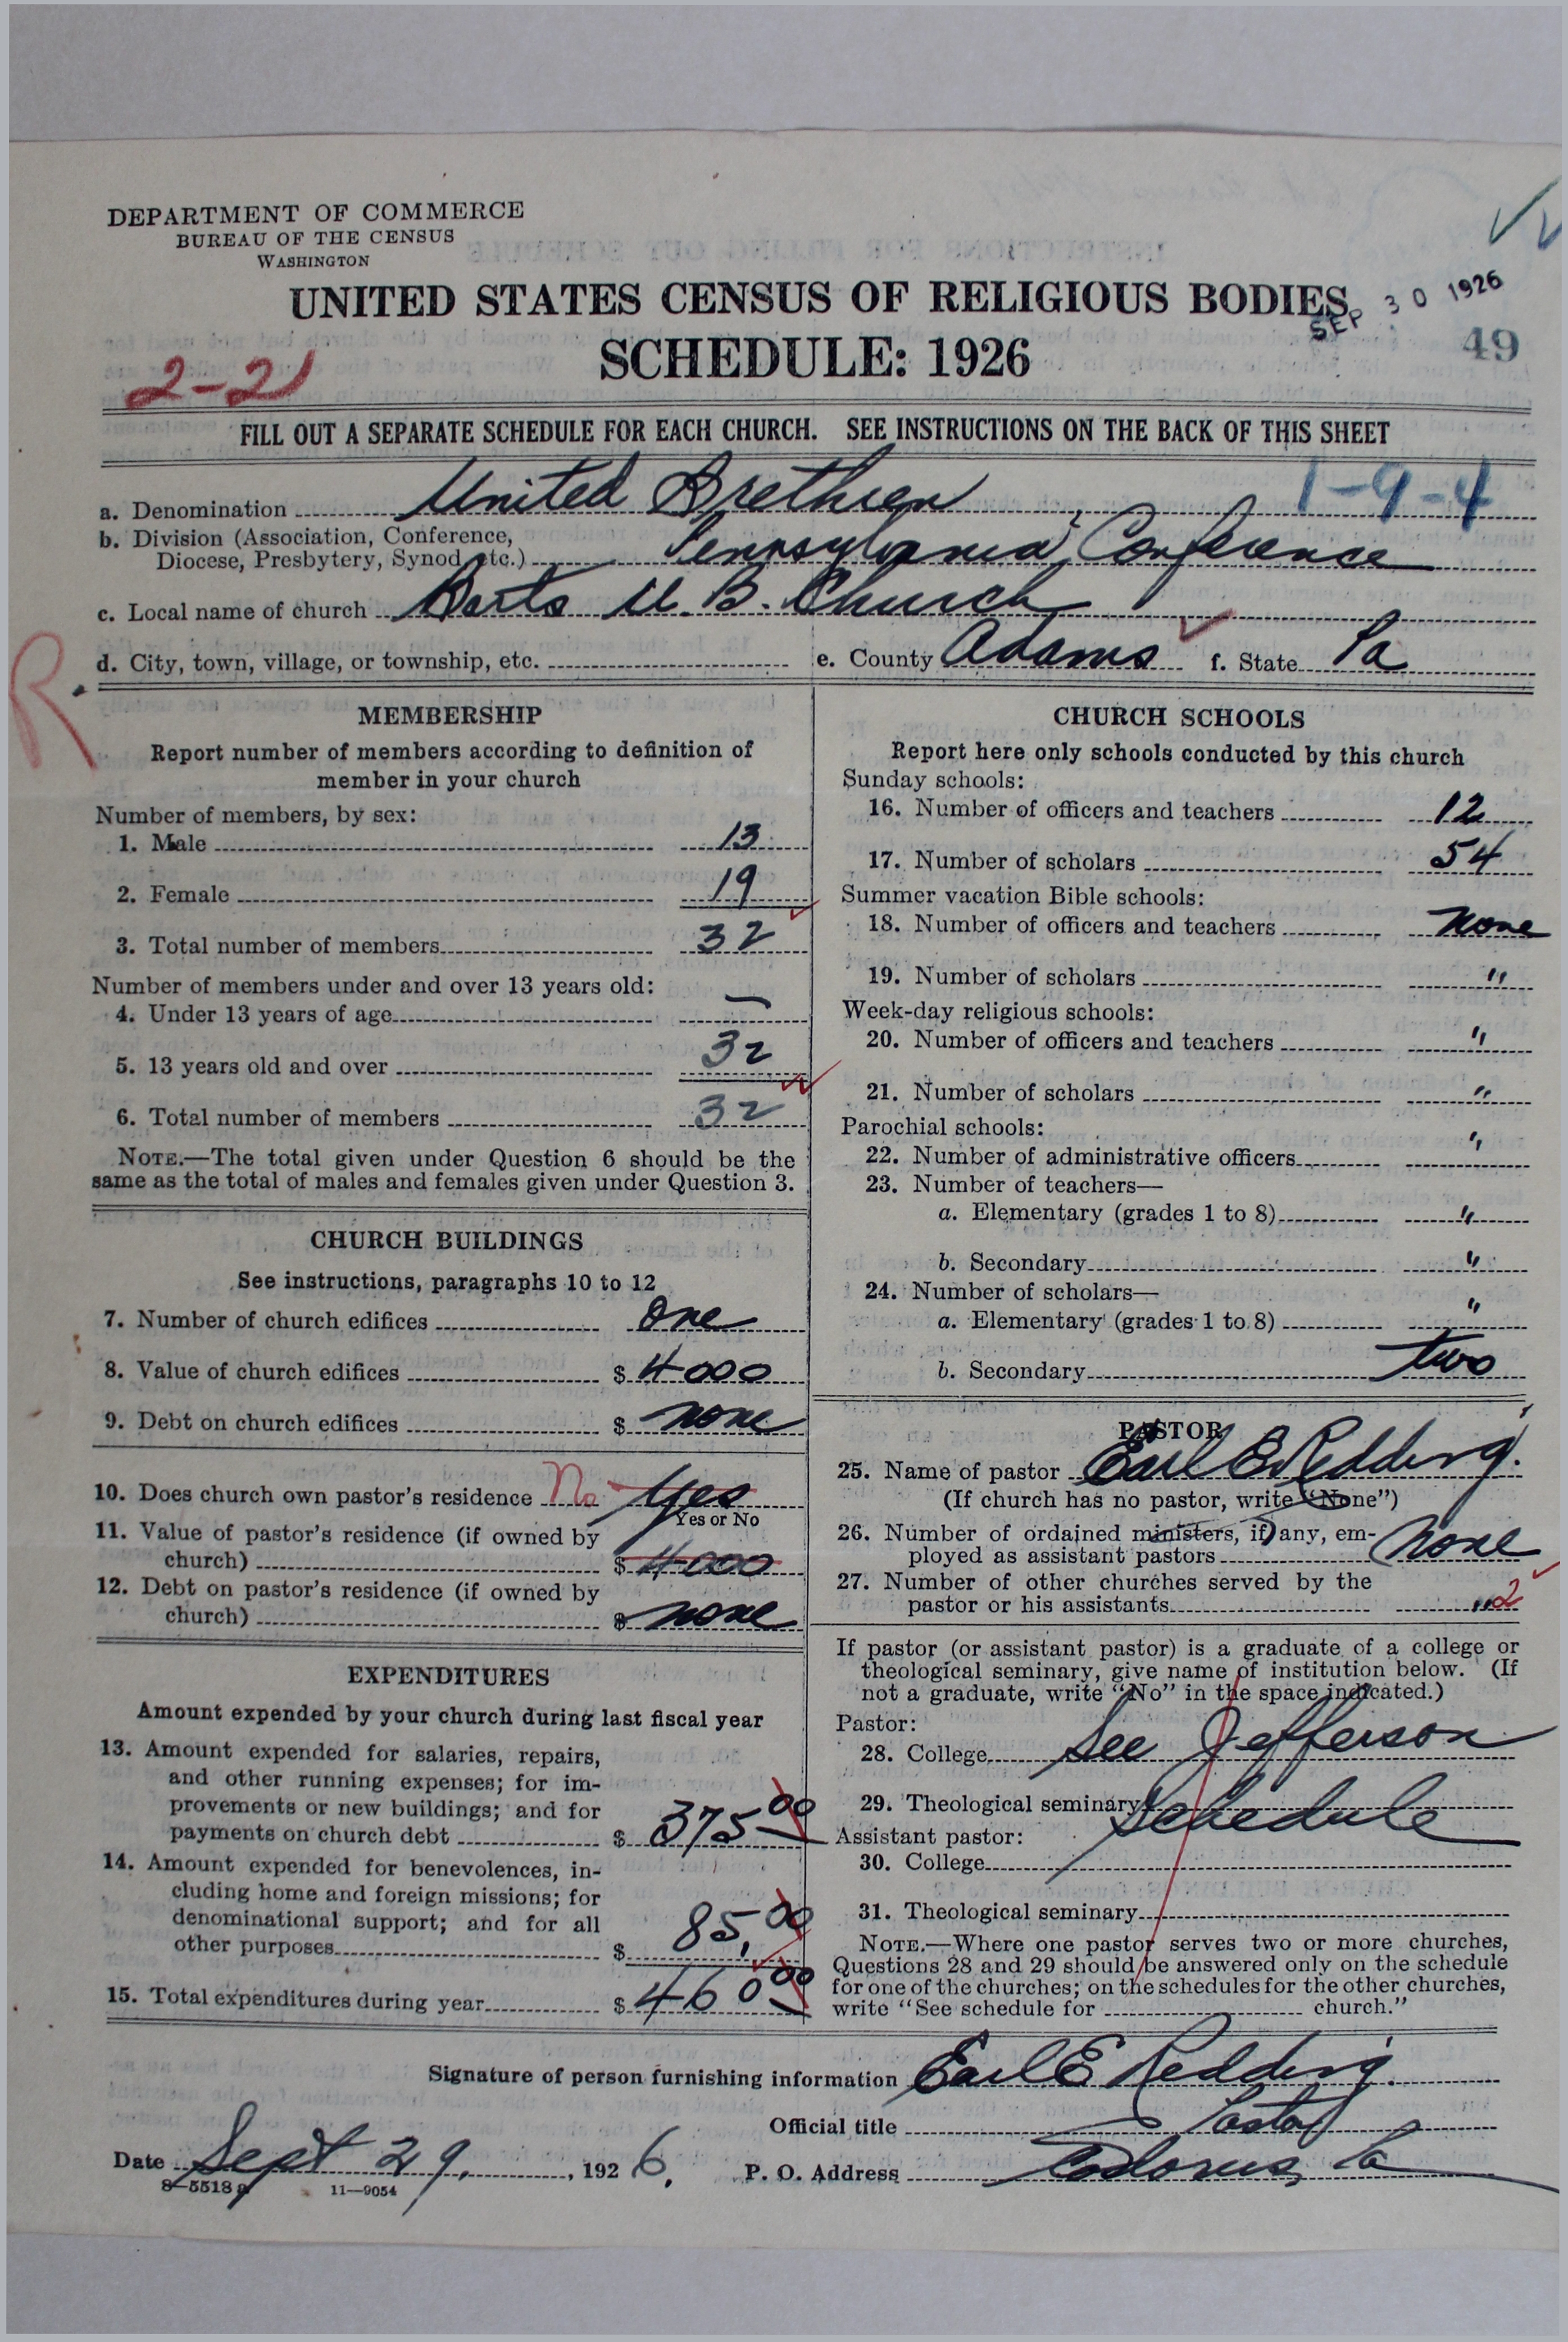 DEPARTMENT OF COMMERCE
BUREAU OF THE CENSUS
WASHINGTON
UNITED STATES CENSUS OF RELIGIOUS BODIES
SEP 30 1926
SCHEDULE: 1926
49
2-21
FILL OUT A SEPARATE SCHEDULE FOR EACH CHURCH. SEE INSTRUCTIONS ON THE BACK OF THIS SHEET
a. Denomination United Brethren 1-9-4
b. Division (Association, Conference,
Diocese, Presbytery, Synod, etc.) Pennsylvania Conference
c. Local name of church Barts U. B. Church
d. City, town, village, or township, etc. e. County Adams f. State Pa
R.
MEMBERSHIP
Report number of members according to definition of
member in your church
Number of members, by sex:
1. Male 13
2. Female 19
3. Total number of members 32
Number of members under and over 13 years old:
4. Under 13 years of age —
5. 13 years old and over 32
6. Total number of members 32
NOTE.—The total given under Question 6 should be the
same as the total of males and females given under Question 3.
CHURCH BUILDINGS
See instructions, paragraphs 10 to 12
7. Number of church edifices One
8. Value of church edifices $ 4000
9. Debt on church edifices $ none
10. Does church own pastor's residence No Yes
Yes or No
11. Value of pastor's residence (if owned by
church) $ 4000
12. Debt on pastor's residence (if owned by
church) $ none
EXPENDITURES
Amount expended by your church during last fiscal year
13. Amount expended for salaries, repairs,
and other running expenses; for im-
provements or new buildings; and for
payments on church debt $ 375.00
14. Amount expended for benevolences, in-
cluding home and foreign missions; for
denominational support; and for all
other purposes $ 85.00
15. Total expenditures during year $ 460 00
CHURCH SCHOOLS
Report here only schools conducted by this church
Sunday schools:
16. Number of officers and teachers 12
17. Number of scholars 54
Summer vacation Bible schools:
18. Number of officers and teachers none
19. Number of scholars "
Week-day religious schools:
20. Number of officers and teachers "
21. Number of scholars "
Parochial schools:
22. Number of administrative officers "
23. Number of teachers—
a. Elementary (grades 1 to 8) "
b. Secondary "
24. Number of scholars—
a. Elementary (grades 1 to 8) "
b. Secondary two
PASTOR
25. Name of pastor Earl E. Redding.
(If church has no pastor, write "None")
26. Number of ordained ministers, if any, em-
ployed as assistant pastors none
27. Number of other churches served by the
pastor or his assistants " 2
If pastor (or assistant pastor) is a graduate of a college or
theological seminary, give name of institution below. (If
not a graduate, write "No" in the space indicated.)
Pastor:
28. College See Jefferson
29. Theological seminary Schedule
Assistant pastor:
30. College
31. Theological seminary
NOTE.—Where one pastor serves two or more churches,
Questions 28 and 29 should be answered only on the schedule
for one of the churches; on the schedules for the other churches,
write "See schedule for church."
Signature of person furnishing information Earl E Redding.
Official title Pastor
Date Sept 29, 1926. P. O. Address Codorus, Pa
8-5518 a 11-9054